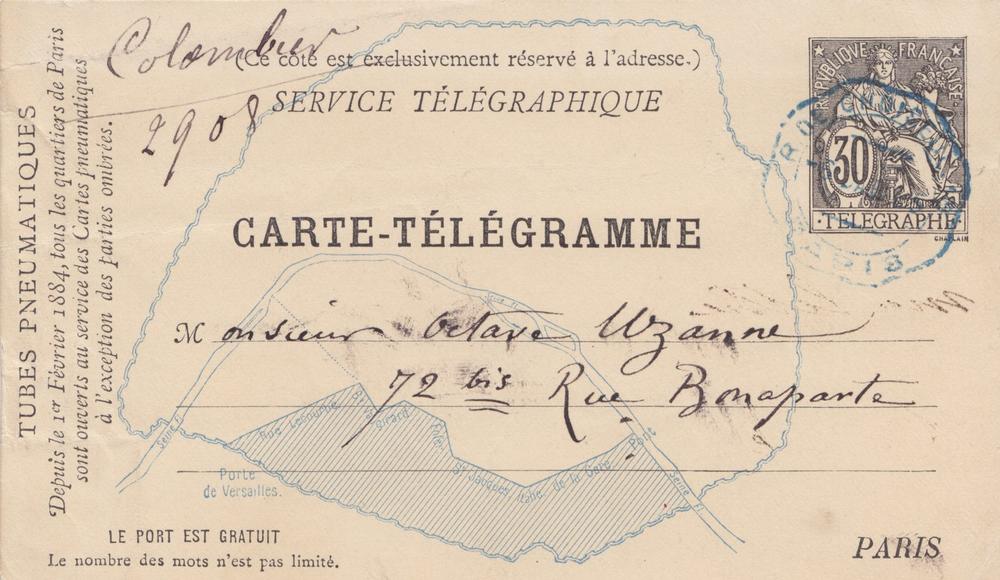 Colombier
2908
(Ce côté est exclusivement réservé à l'adresse.)
SERVICE TÉLÉGRAPHIQUE
CARTE-TÉLÉGRAMME
TUBES PNEUMATIQUES
Depuis le 1er Février 1884, tous les quartiers de Paris
sont ouverts au service des Cartes pneumatiques
à l'exception des parties ombrées.
REPUBLIQUE FRANÇAISE
30
TELEGRAPHE
CHAPLAIN
PARIS
Monsieur Octave Uzanne
72 bis Rue Bonaparte
Seine
Rue Lecourbe
Girard
St Jacques
Italie
de la Gare
Seine
Porte
de Versailles.
LE PORT EST GRATUIT
Le nombre des mots n'est pas limité.
PARIS